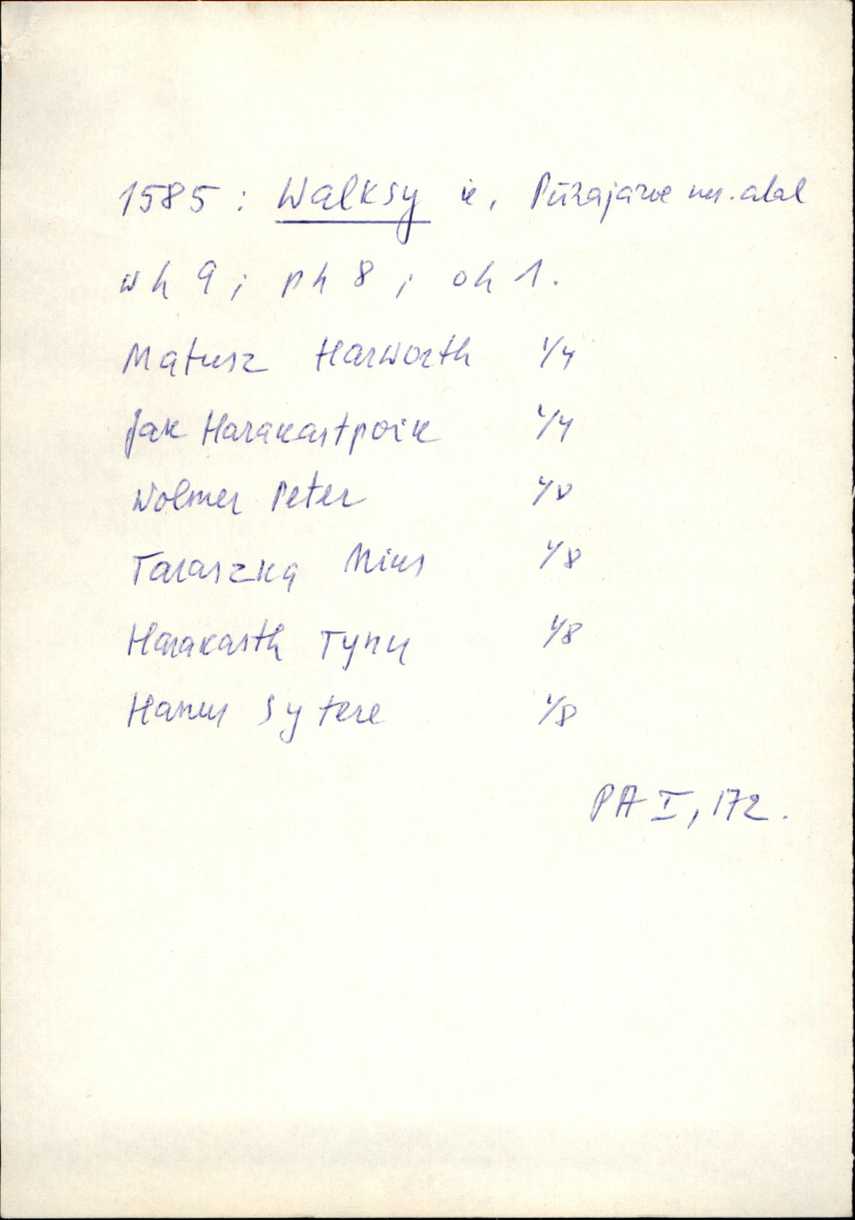 1585: Walksy k. Pühajärve ms. alal
wh 9; ph 8; oh 1.
Matusz Harworth 1/4
Jak Harakastpoik 1/4
Wolmer Peter 1/8
Taraszka Nius 1/8
Harakasth Tynu 1/8
Hanus Sytere 1/8
PA I, 172.